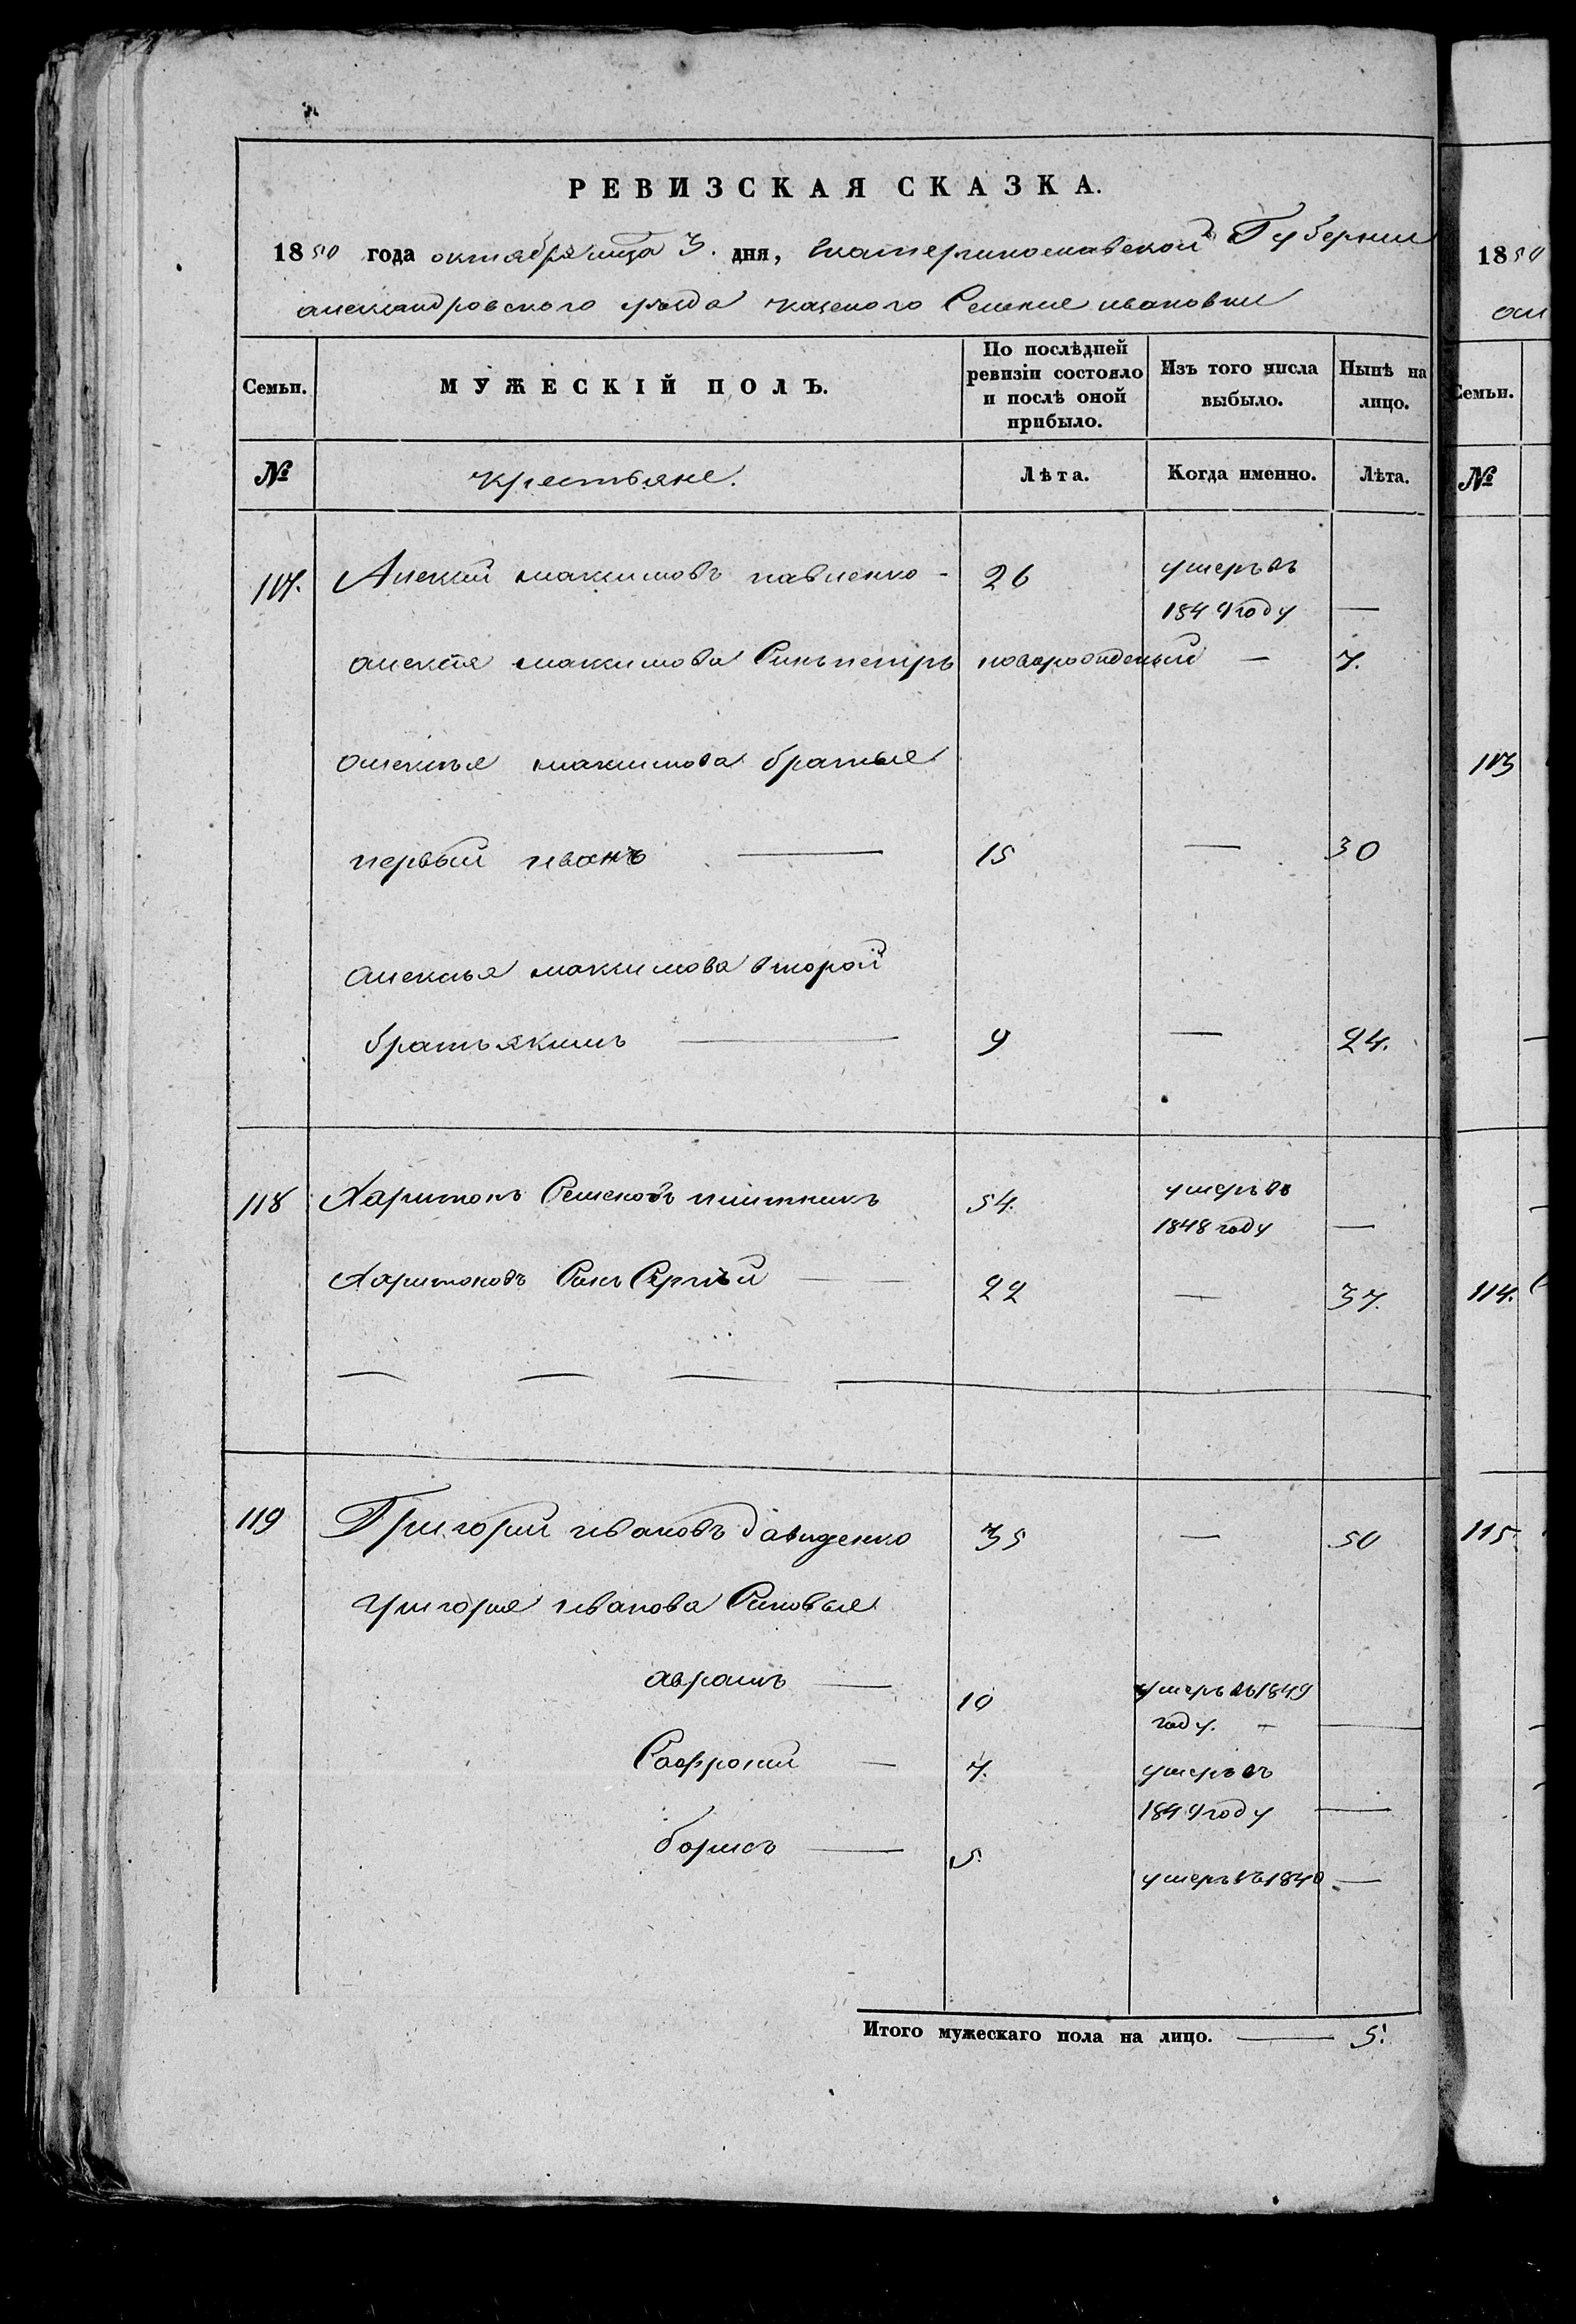 РЕВИЗСКАЯ СКАЗКА.
1850 года октября мца 3. дня, Екатеринославской Губернии
александровского уезда казеного Селения ивановки
Семьи. МУЖЕСКІЙ ПОЛЪ. По послѣдней ревизіи состояло и послѣ оной прибыло. Изъ того числа выбыло. Нынѣ на лицо.
№ крестьяне. Лѣта. Когда именно. Лѣта.
117. Алексей максимовъ павленко - 26 умеръ въ 1849 году —
алексея максимова Синъ петръ новорожденый — 7.
алексъя максимова братья
первый иванъ — 15 — 30
алексъя максимова второй
братъ якимъ — 9 — 24.
118 Харитонъ Семеновъ плитникъ 54. умеръ въ 1848 году —
Харитоновъ Синъ Сергѣй — 22 — 37.
119 Григорий ивановъ давиденко 35 — 50
григория иванова Синовья
аврамъ — 10 умеръ въ 1849 году. —
Софроний — 7. умеръ въ 1849 году —
борисъ — 5. умеръ въ 1840 —
Итого мужескаго пола на лицо. — 5.
1850
ал
Семьи.
№
113
114.
115.